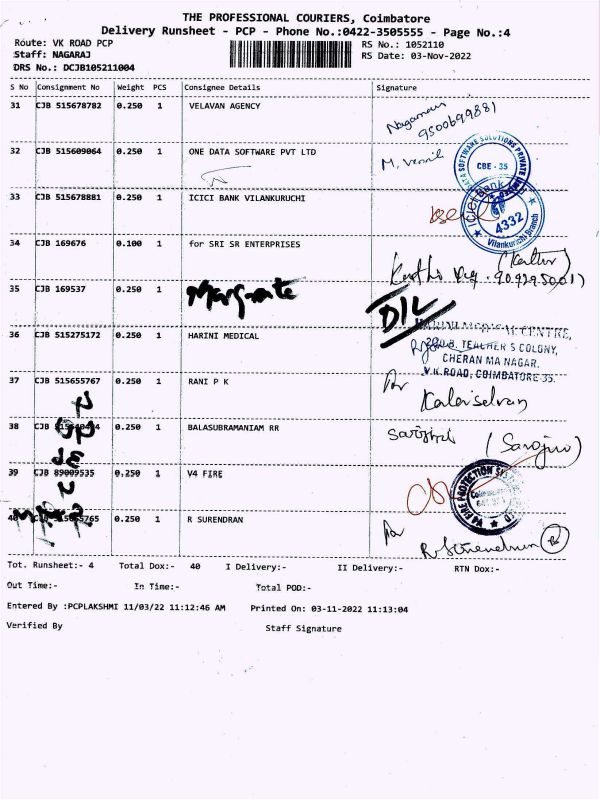 THE PROFESSIONAL COURIERS, Coimbatore
Delivery Runsheet - PCP - Phone No.:0422-3505555 - Page No.:4
Route: VK ROAD PCP
Staff: NAGARAJ
DRS No.: DCJB105211004
RS No.: 1052110
RS Date: 03-Nov-2022
S No Consignment No Weight PCS Consignee Details Signature
31 CJB 515678782 0.250 1 VELAVAN AGENCY
9500699881
32 CJB 515609064 0.250 1 ONE DATA SOFTWARE PVT LTD
DATA SOFTWARE SOLUTIONS PRIVATE
CBE - 35
33 CJB 515678881 0.250 1 ICICI BANK VILANKURUCHI
ICICI Bank
4332
Vilankuruchi Branch
34 CJB 169676 0.100 1 for SRI SR ENTERPRISES
35 CJB 169537 0.250 1 Margrate
D/L
36 CJB 515275172 0.250 1 HARINI MEDICAL
HARINI MEDICAL CENTRE,
TEACHER S COLONY,
CHERAN MA NAGAR,
V.K.ROAD, COIMBATORE-35.
37 CJB 515655767 0.250 1 RANI P K
Kalaiselvan
38 CJB 0.250 1 BALASUBRAMANIAM RR
(Sarojini)
39 CJB 89009535 0.250 1 V4 FIRE
V4 FIRE PROTECTION
40 0.250 1 R SURENDRAN
R. Surendran
Tot. Runsheet:- 4 Total Dox:- 40 I Delivery:- II Delivery:- RTN Dox:-
Out Time:- In Time:- Total POD:-
Entered By :PCPLAKSHMI 11/03/22 11:12:46 AM Printed On: 03-11-2022 11:13:04
Verified By Staff Signature